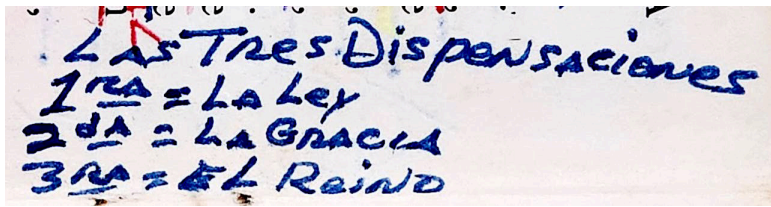 Las Tres Dispensaciones
1ra = La Ley
2da = La Gracia
3ra = El Reino